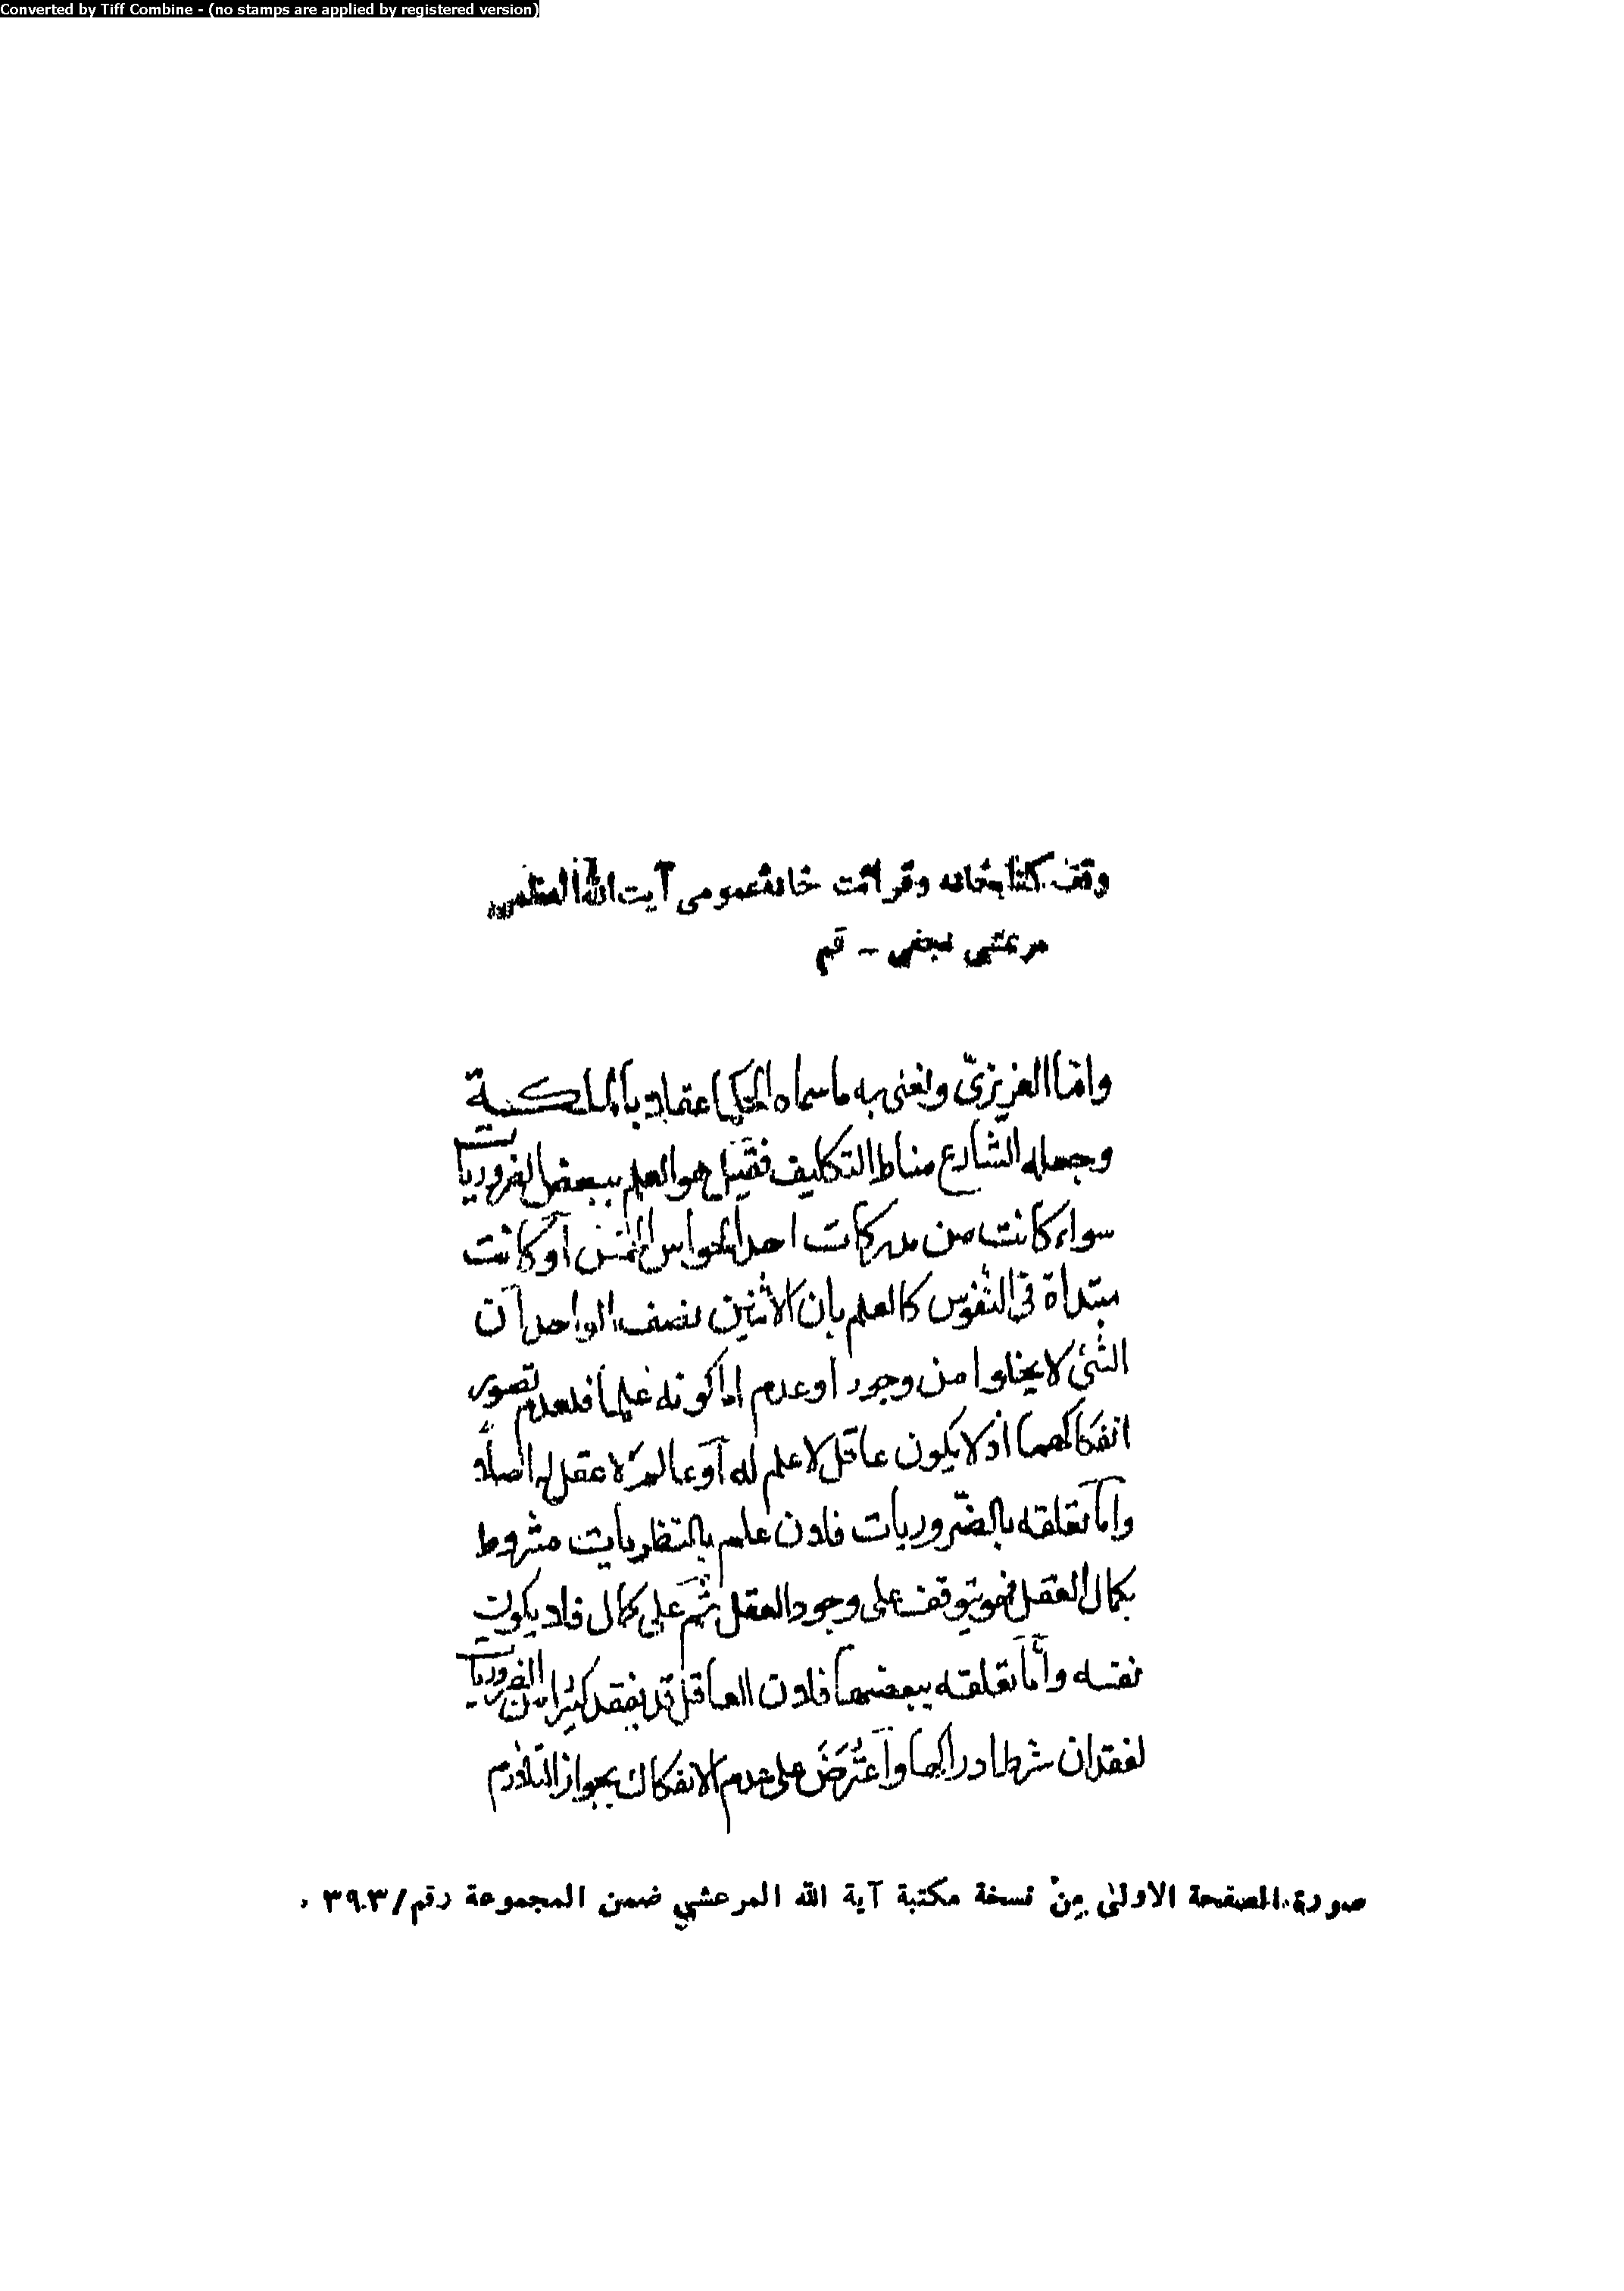 Converted by Tiff Combine - (no stamps are applied by registered version)
وقف كتابخانه وقرائت خانه عمومى آيت الله العظمى
مرعشى نجفى - قم
وامّا الغريزىّ ونعنى به ما سماه الحكما عقلا بالملكة
وجعله الشّارع مناط التكليف فقيل هو العلم ببعض الضروريات
سواء كانت من مدركات احدا الحواس الخمس أو كانت
مبتداة فى النّفوس كالعلم بان الاثنين نصف الواحد أن
الشئ لا يخلوا من وجود أو عدم اما كونه علما فلعدم تصور
انفكاكهما اذ لا يكون عاقل لا علم له أو عالم لا عقل له اصلاً
وامّا تعلقه بالضّروريات فلان علم بالنظريات مشروط
بكمال العقل فهو يتوقف على وجود العقل ثم على كمال فلا يكون
نفسه وأمّا تعلقه ببعضها فلان العاقل قد يفقد كثيرا من الضروريات
لفقدان شرط ادراكها واعتُرَضَ على عدم الانفكاك بجواز التلازم
صورة الصفحة الاولىٰ مِنْ نسخة مكتبة آية الله المرعشي ضمن المجموعة رقم/٣٩٠٣ .